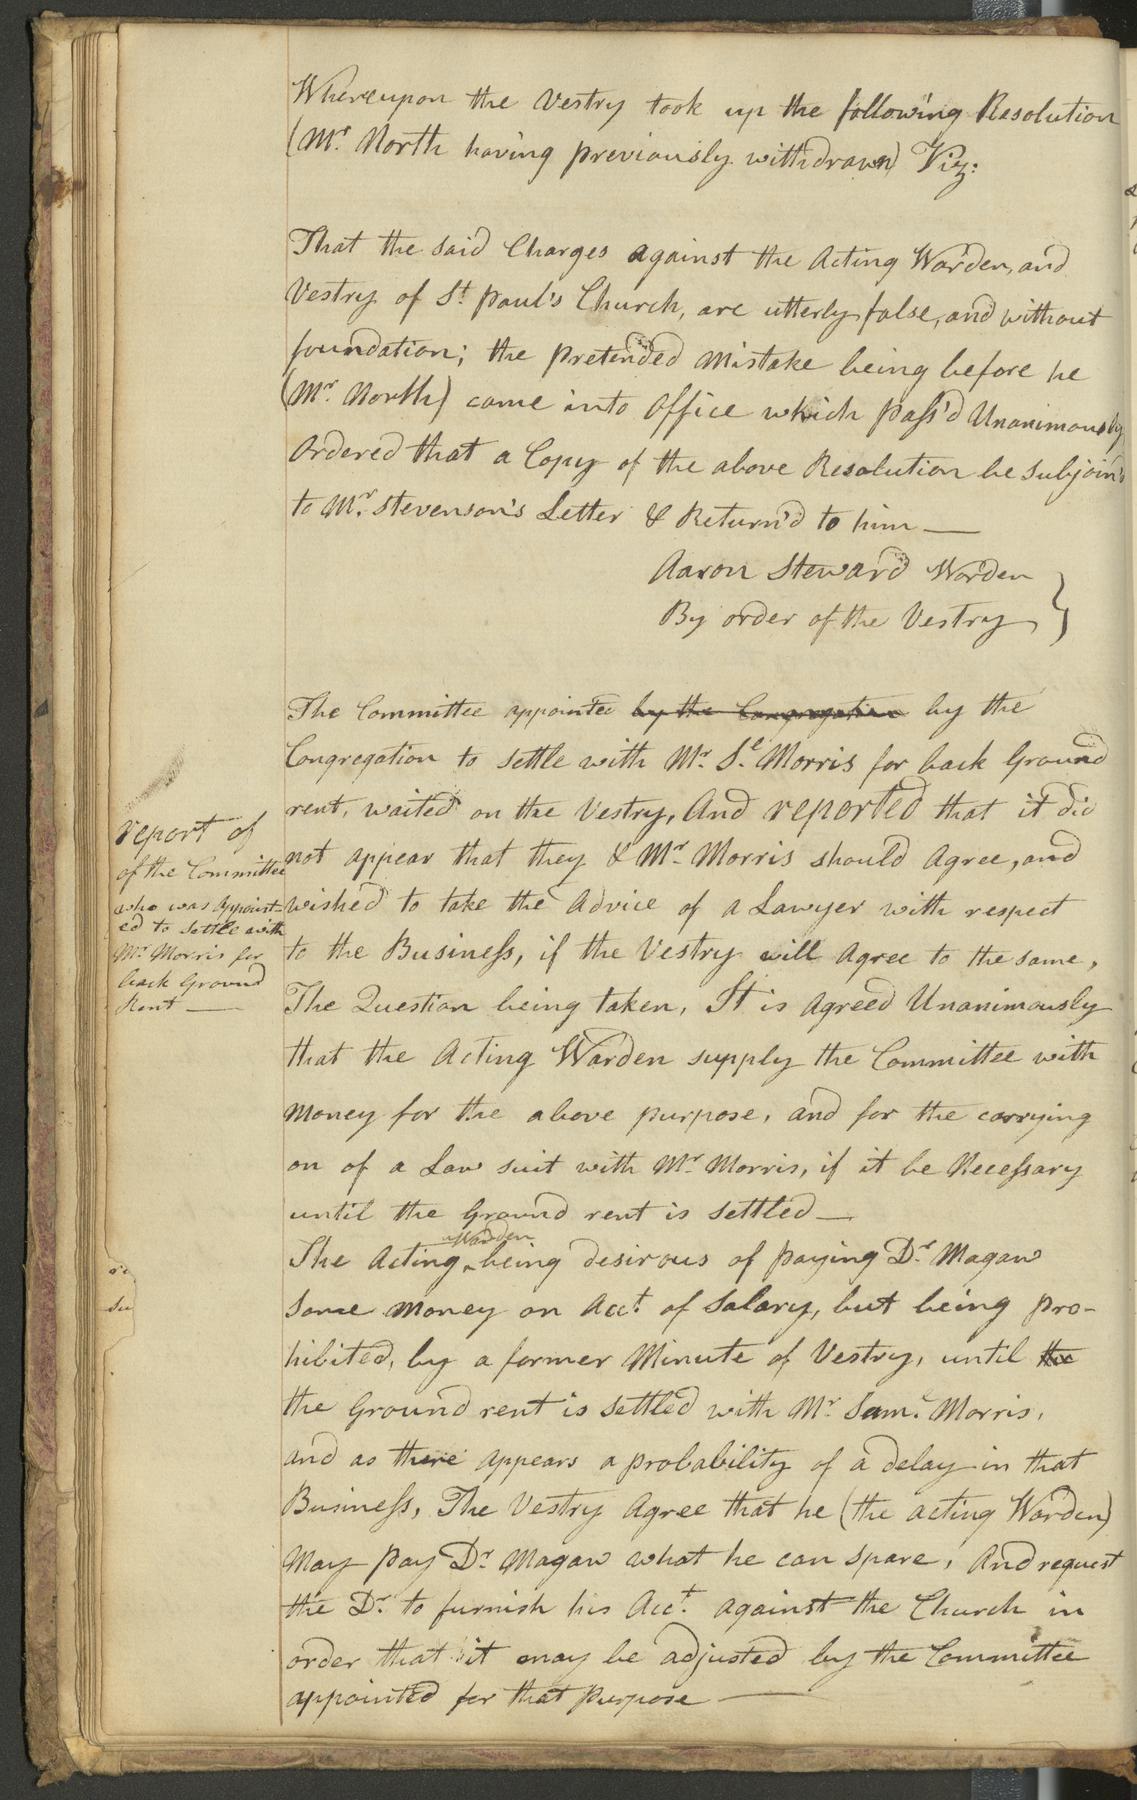 Whereupon the Vestry took up the following Resolution
(Mr. North having previously withdrawn) Viz:
That the said Charges against the Acting Warden, and
Vestry of St. Paul's Church, are utterly false, and without
foundation; the pretended Mistake being before he
(Mr. North) came into Office which pass'd Unanimously
Ordered that a Copy of the above Resolution be Subjoin'd
to Mr. Stevenson's Letter & Return'd to him —
Aaron Steward Warden
By order of the Vestry }
The Committee appointed by the Congregation by the
Congregation to settle with Mr. Sl. Morris for back Ground
rent, waited on the Vestry, And reported that it did
not appear that they & Mr. Morris should Agree, and
wished to take the Advice of a Lawyer with respect
to the Business, if the Vestry will Agree to the same,
The Question being taken, It is Agreed Unanimously
that the Acting Warden supply the Committee with
Money for the above purpose, and for the carrying
on of a Law suit with Mr. Morris, if it be Necessary
until the Ground rent is settled —
report of
of the Committee
who was Appoint-
ed to settle with
Mr. Morris for
back Ground
Rent —
Warden
The Acting ^ being desirous of paying Dr. Magaw
Some Money on Acct. of Salary, but being pro-
hibited, by a former Minute of Vestry, until the
the Ground rent is settled with Mr. Saml. Morris,
and as there appears a probability of a delay in that
Business, The Vestry Agree that he (the acting Warden)
May pay Dr. Magaw what he can spare, And request
the Dr. to furnish his Acct. against the Church in
order that it may be adjusted by the Committee
appointed for that Purpose —